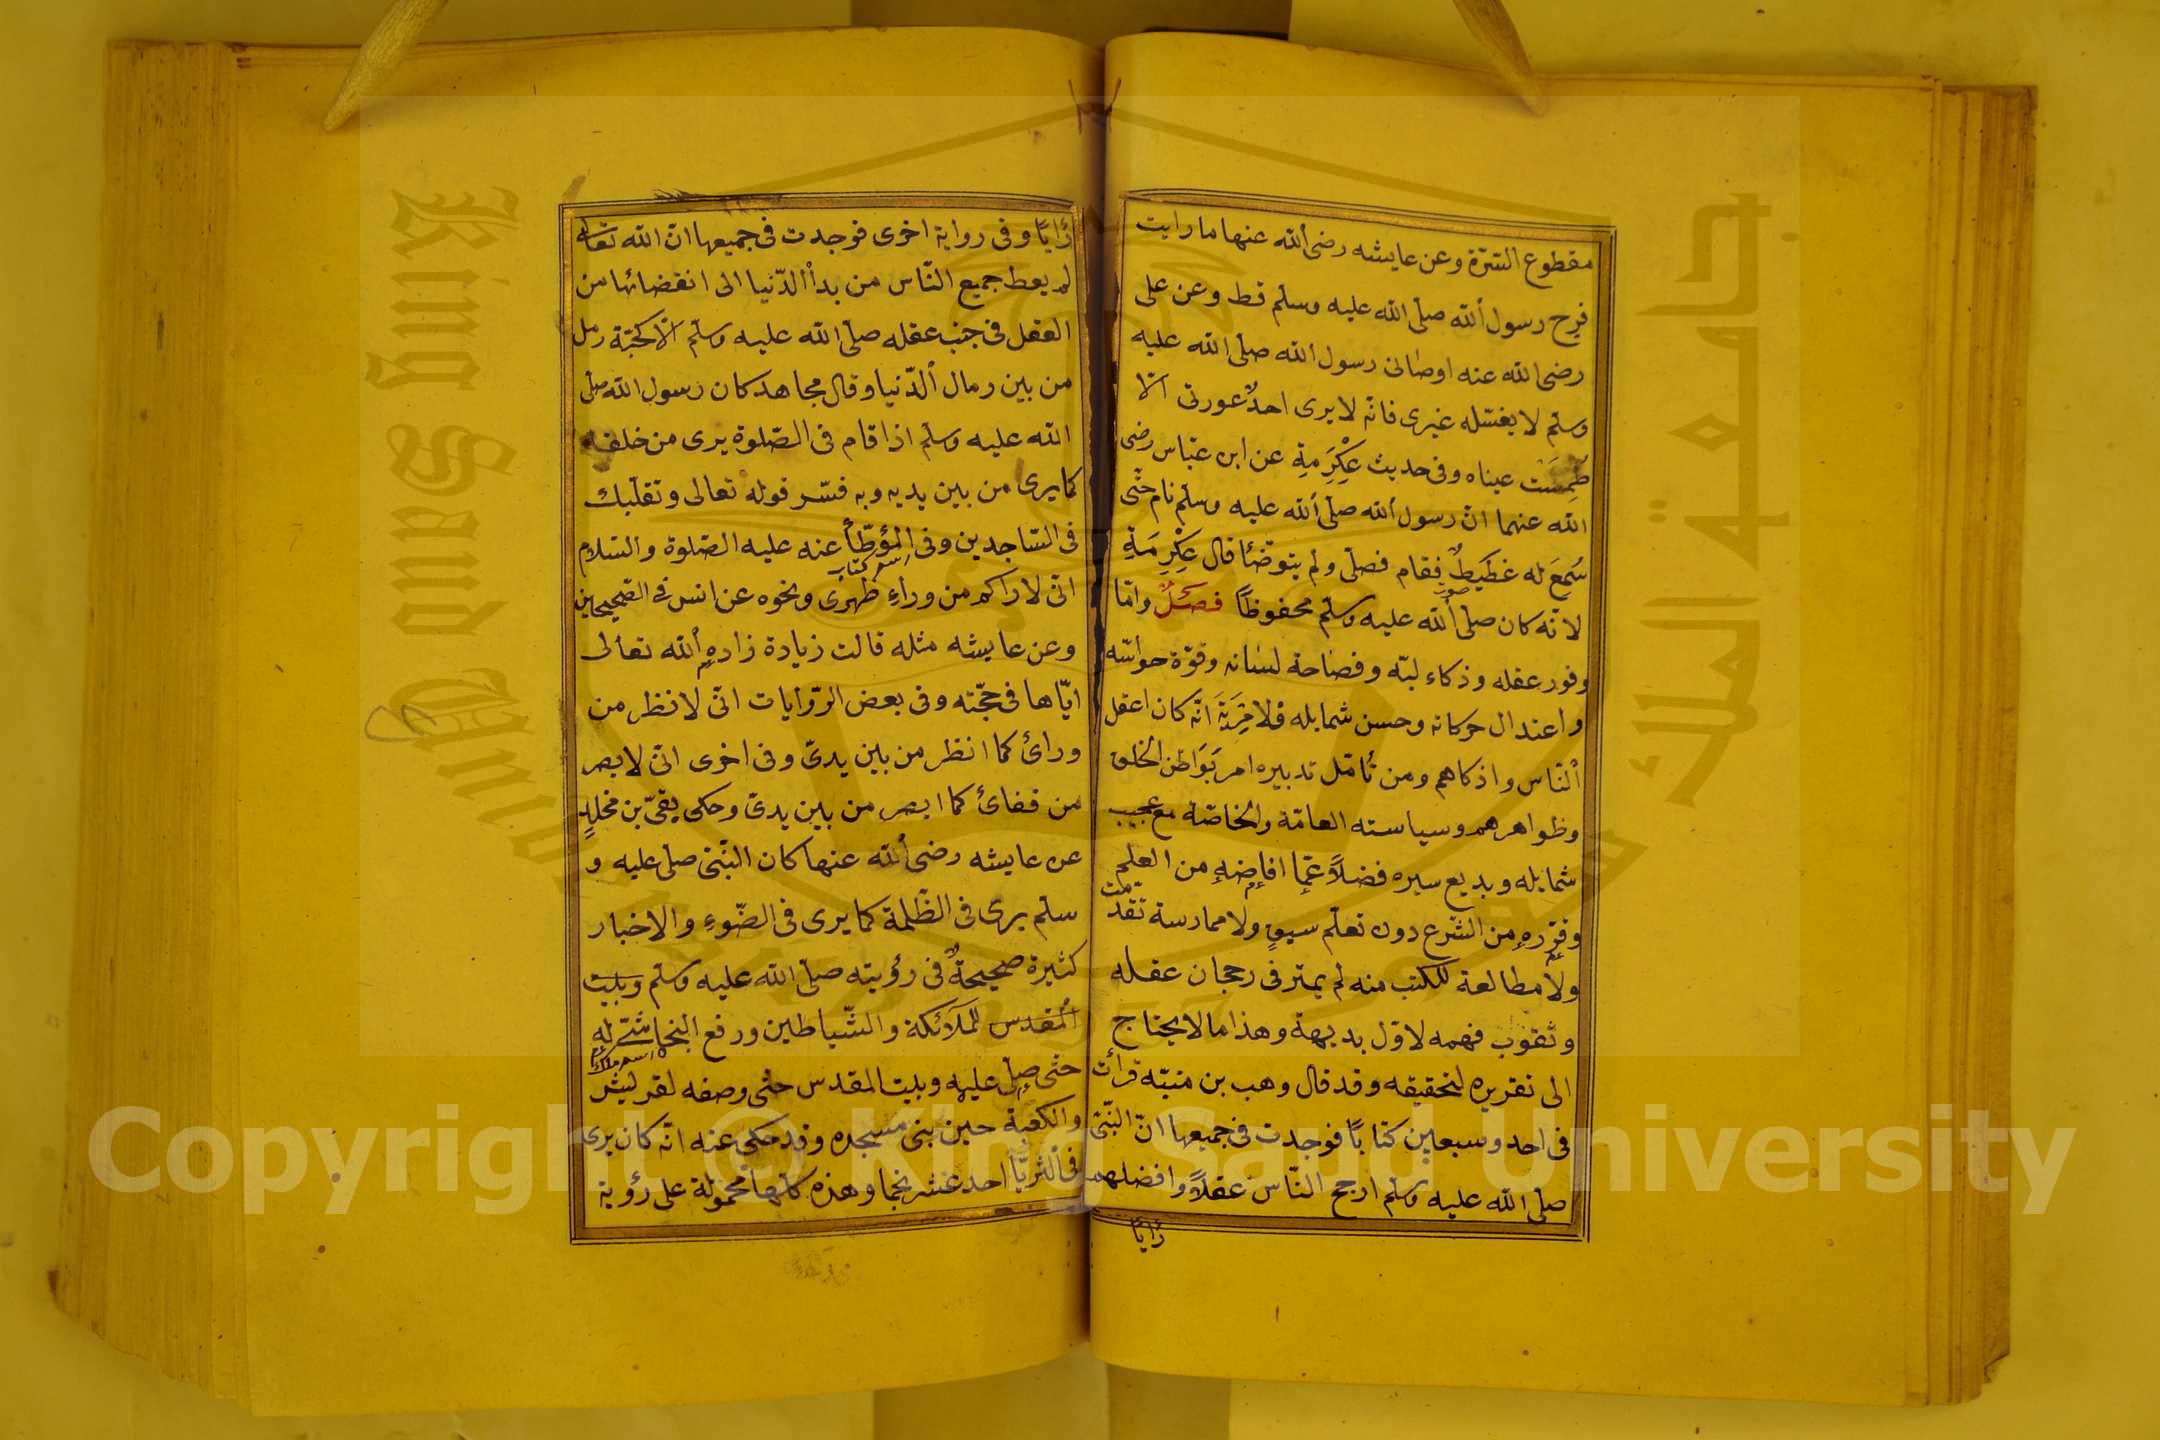 مقطوع السّرّة وعن عايشه رضى الله عنها ما رايت
فرج رسول الله صلّى الله عليه وسلّم قط وعن على
رضى الله عنه اوصانى رسول الله صلّى الله عليه
وسلّم لا يغسّله غيرى فانّه لا يرى احدٌ عورتى الّا
طُمِسَت عيناه وفى حديث عِكْرَمةِ عن ابن عبّاس رضى
الله عنهما انّ رسول الله صلّى الله عليه وسلّم نام حتّى
سُمِعَ له غطيطٌ فقام فصلّى ولم يتوضّئا قال عِكْرِمَةِ
صوت
لانّه كان صلّى الله عليه وسلّم محفوظاً فصلٌ وامّا
وفور عقله وذكاء لبّه وفصاحة لسانه وقوّة حواسّه
واعتدال حركاته وحسن شمايله فلا مِريَةَ انّه كان اعقل
النّاس واذكاهم ومن تأمّل تدبيره امر بَوَاطن الخلق
وظواهرهم وسياسته العامّة والخاصّة مع عجيب
شمايله وبديع سيره فضلاً عمّا افاضه من العلم
وقرّره من الشّرع دون تعلّم سبق ولا ممارسة تقدّمت
ولا مطالعة للكتب منه لم يمتر فى رجحان عقله
وثقوب فهمه لاوّل بديهة وهذا ما لا يحتاج
الى تقريره لتحقيقه وقد قال وهب بن منبّه قرأت
فى احد وسبعين كتاباً فوجدت فى جميعها انّ النّبّى
صلّى الله عليه وسلّم ارجح النّاس عقلاً وافضلهم
رأيًا
رأيًا وفى رواية اخرى فوجدت فى جميعها انّ الله تعالى
لم يعط جميع النّاس من بدأ الدّنيا الى انقضائها من
العقل فى جنب عقله صلّى الله عليه وسلّم الّا كحبّة رمل
من بين رمال الدّنيا وقال مجاهد كان رسول الله صلّى
الله عليه وسلّم اذا قام فى الصّلوة يرى من خلفه
كما يرى من بين يديه وبه فسّر قوله تعالى وتقلّبك
فى السّاجدين وفى المؤطّأ عنه عليه الصّلوة والسّلام
اسم كتاب
انّى لاراكم من وراءِ ظهرى ونحوه عن انس فى الصّحيحين
وعن عايشه مثله قالت زيادة زاده الله تعالى
ايّاها فى حجّته وفى بعض الرّوايات انّى لانظر من
ورائ كما انظر من بين يدىّ وفى اخرى انّى لابصر
من قفائ كما ابصر من بين يدىّ وحكى بقىّ بن مخلدٍ
عن عايشه رضى الله عنها كان النّبّى صلّى عليه و
سلّم يرى فى الظّلمة كما يرى فى الضّوءِ والاخبار
كثيرة صحيحةٌ فى رؤيته صلّى الله عليه وسلّم وبيت
المقدس للملائكة والشّياطين ورفع النجاشىّ له
اسم ملك
حتّى صلّى عليه وبيت المقدس حتّى وصفه لقريش
والكعبة حين بنى مسجده وقد حكى عنه انّه كان يرى
فى الثريّا احد عشر نجما وهذه كلّها محمولة على رؤية
King Saud University
جامعة الملك سعود
Copyright © King Saud University